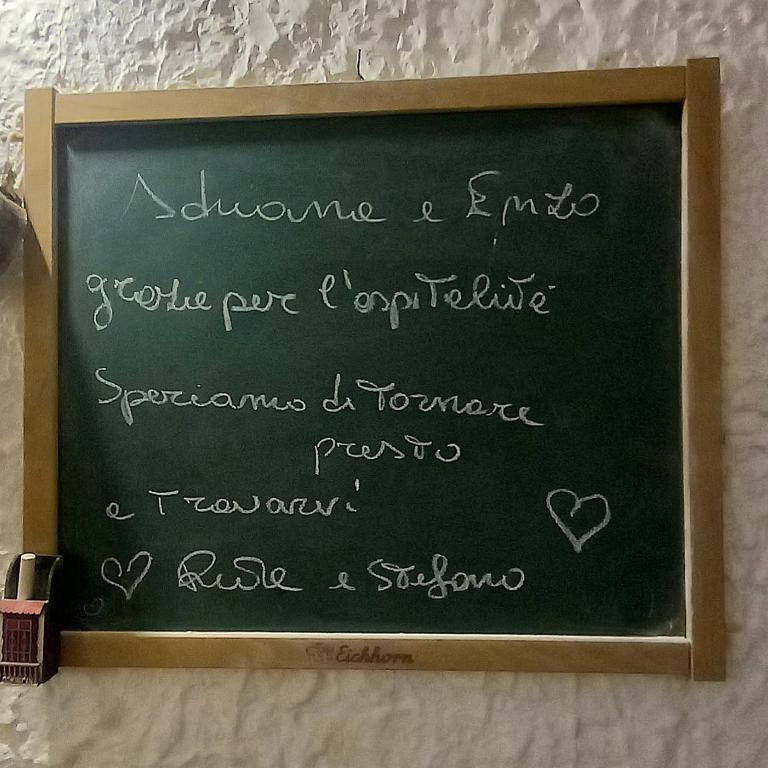 Adriana e Enzo
grazie per l'ospitalità
Speriamo di Tornare
presto
e Trovarvi
e Stefano
Eichhorn